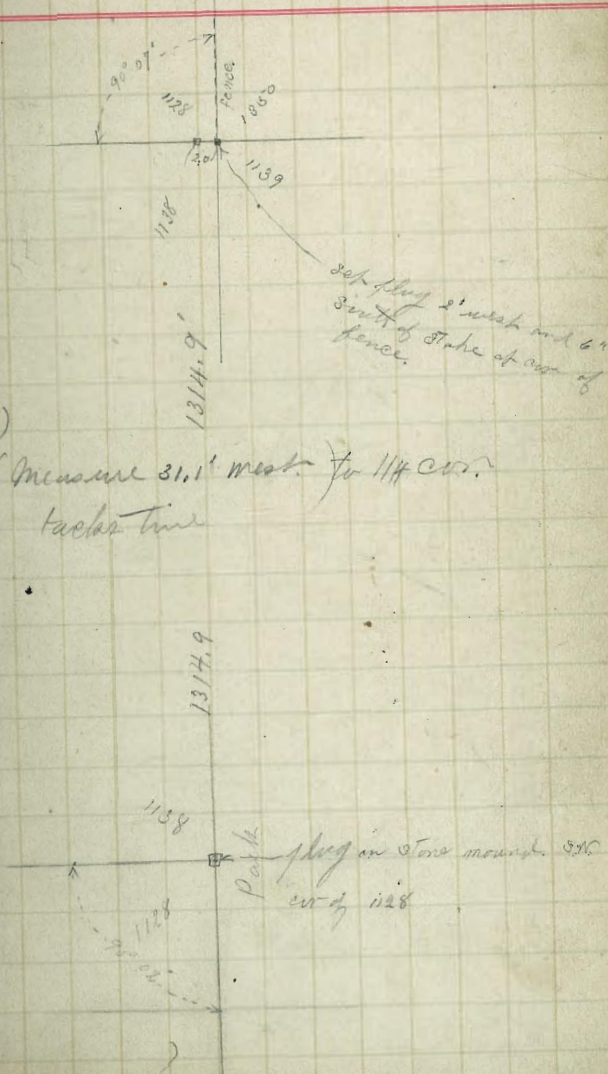 90° 07'
fence
1128
1350
2.0
1139
1138
Set plug 2' west and 6"
South of Stake at cor of
fence.
1314.9'
Measure 31.1' west. to 1/4 cor.
line
1314.9
1138
Park
plug in stone mound.
cor of 1128
1128
90° 02'